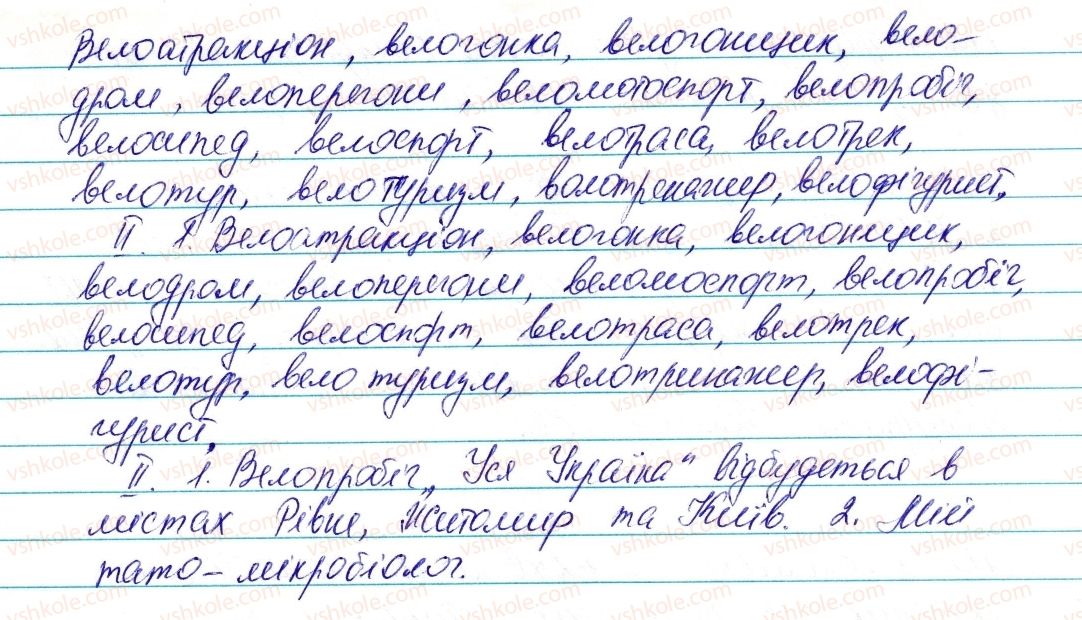 Велоатракціон, велогонка, велогонщик, вело-
дром, велоперегони, веломотоспорт, велопробіг,
велосипед, велоспорт, велотраса, велотрек,
велотур, велотуризм, волотренажер, велофігурист.
ІІ. 1. Велоатракціон, велогонка, велогонщик,
велодром, велоперегони, веломоспорт, велопробіг,
велосипед, велоспорт, велотраса, велотрек,
велотур, велотуризм, велотринажер, велофі-
гурист.
ІІ. 1. Велопробіг „Уся Україна" відбудеться в
містах Рівне, Житомир та Київ. 2. Мій
тато – мікробіолог.